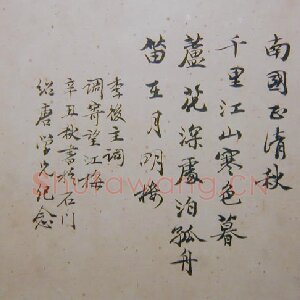 南國正清秋
千里江山寒色暮
蘆花深處泊孤舟
笛在月明樓
李後主詞
調寄望江梅
辛丑秋書於石门
紹唐學纪念
Shufawang.CN